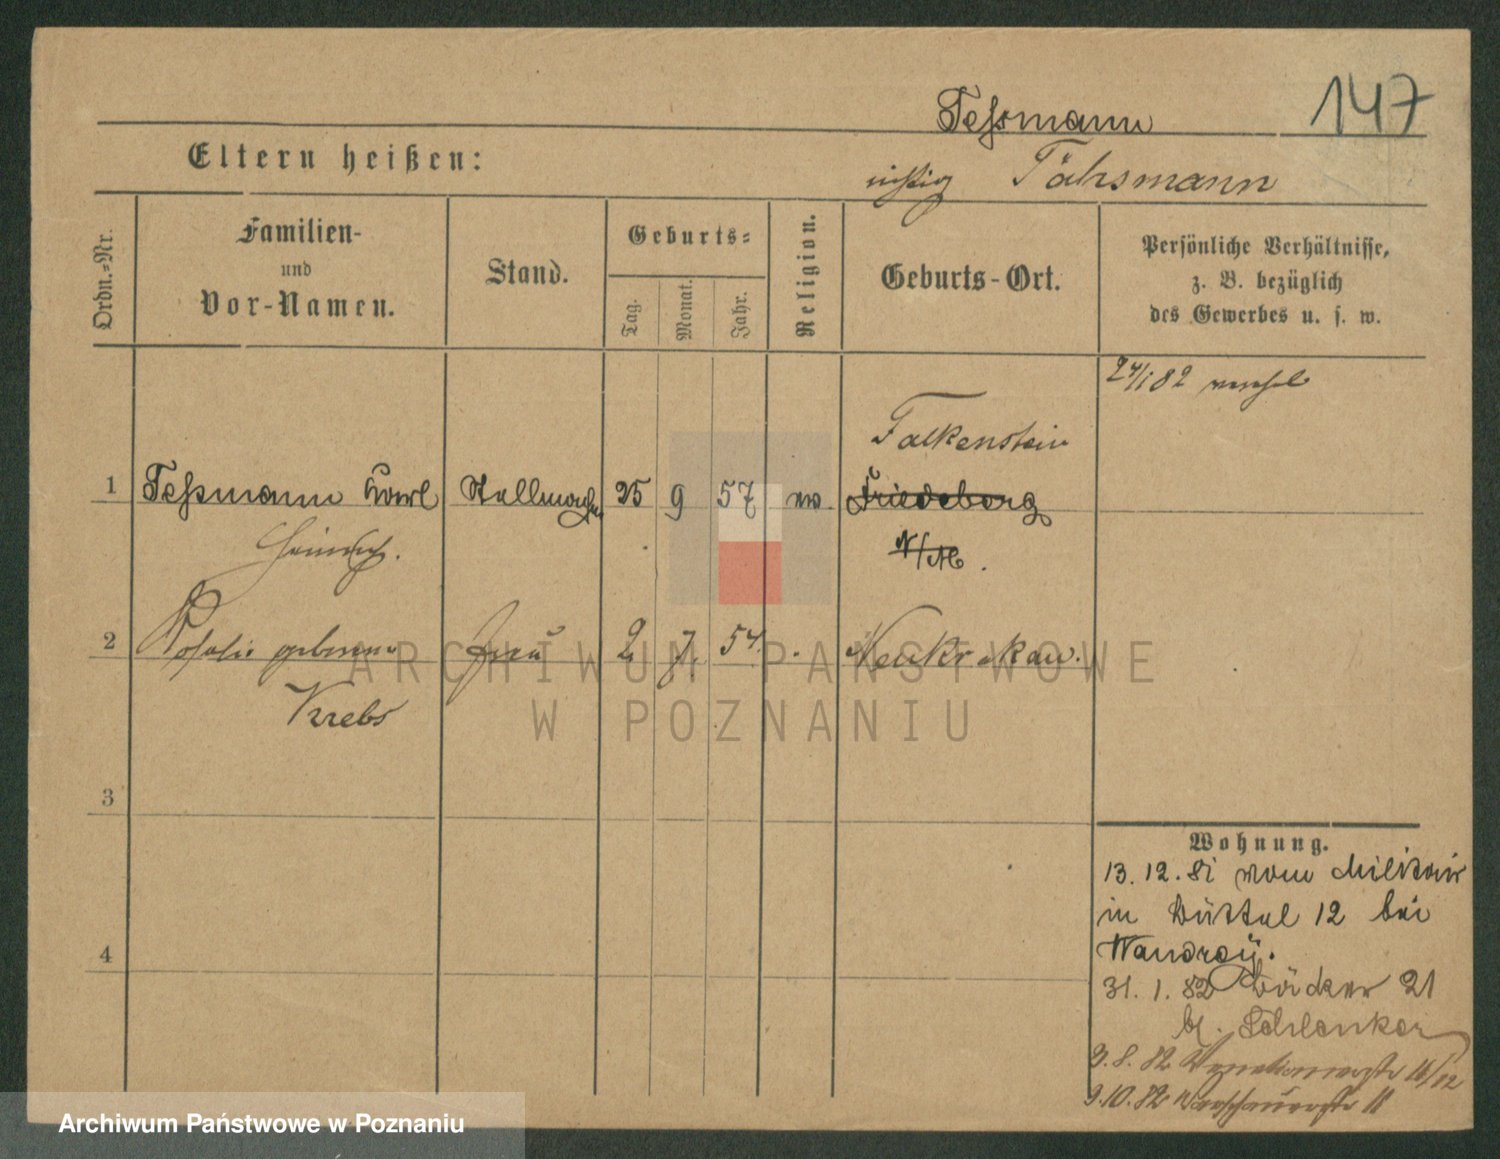 147
Teßmann
Eltern heißen:
richtig Tähsmann
Ordn.-Nr.
Familien-
und
Vor-Namen.
Stand.
Geburts-
Tag.
Monat.
Jahr.
Religion.
Geburts-Ort.
Persönliche Verhältnisse,
z. B. bezüglich
des Gewerbes u. s. w.
24/1 82
Falkenstein
1 Teßmann Karl Stellmacher 25 9 57 ev. Friedeberg
Heinrich. N/M.
2 Rosalie geborene Frau 2 7. 54. Neukrakau.
Krebs
3
4
Wohnung.
13. 12. 81 vom Militair
in Büttel 12 bei
Wandrey.
31. 1. 82 Bäcker 21
b. Schlenker
3. 8. 82 11/12
9.10.82 Warschauerstr 11
ARCHIWUM PAŃSTWOWE
W POZNANIU
Archiwum Państwowe w Poznaniu